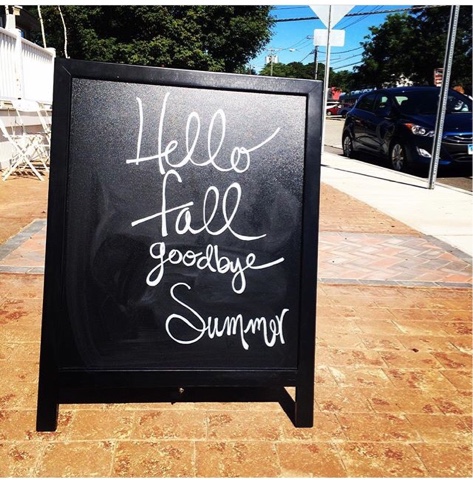 Hello
fall
goodbye
Summer